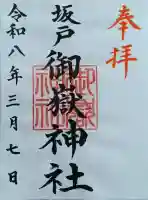 奉拝
坂戸御嶽神社
令和八年三月七日